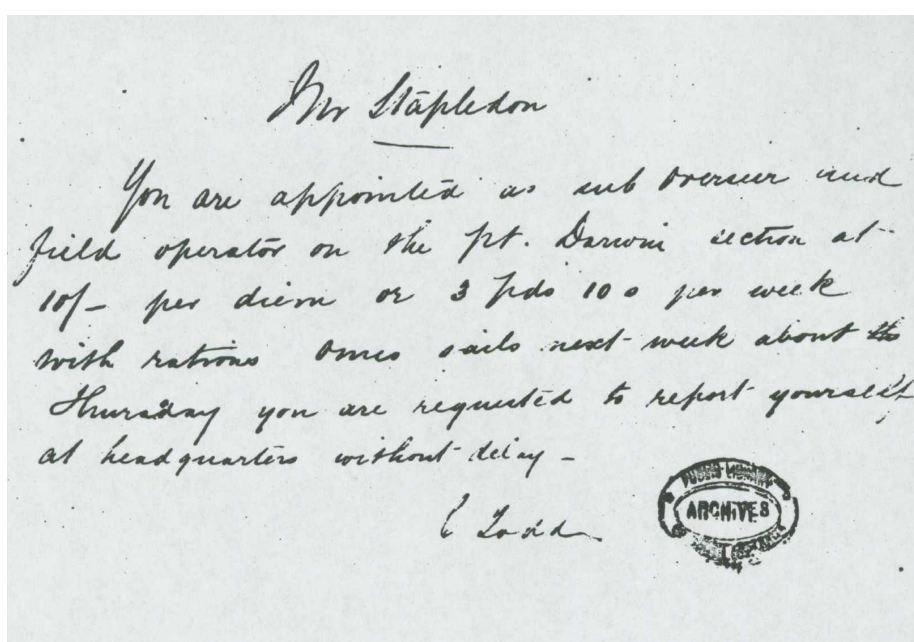 Mr Stapledon
You are appointed as sub overseer and
field operator on the Pt. Darwin section at
10/- per diem or 3 pds 10 s per week
with rations Omeo sails next week about
Thursday you are requested to report yourself
at headquarters without delay -
C Todd
PUBLIC LIBRARY
ARCHIVES